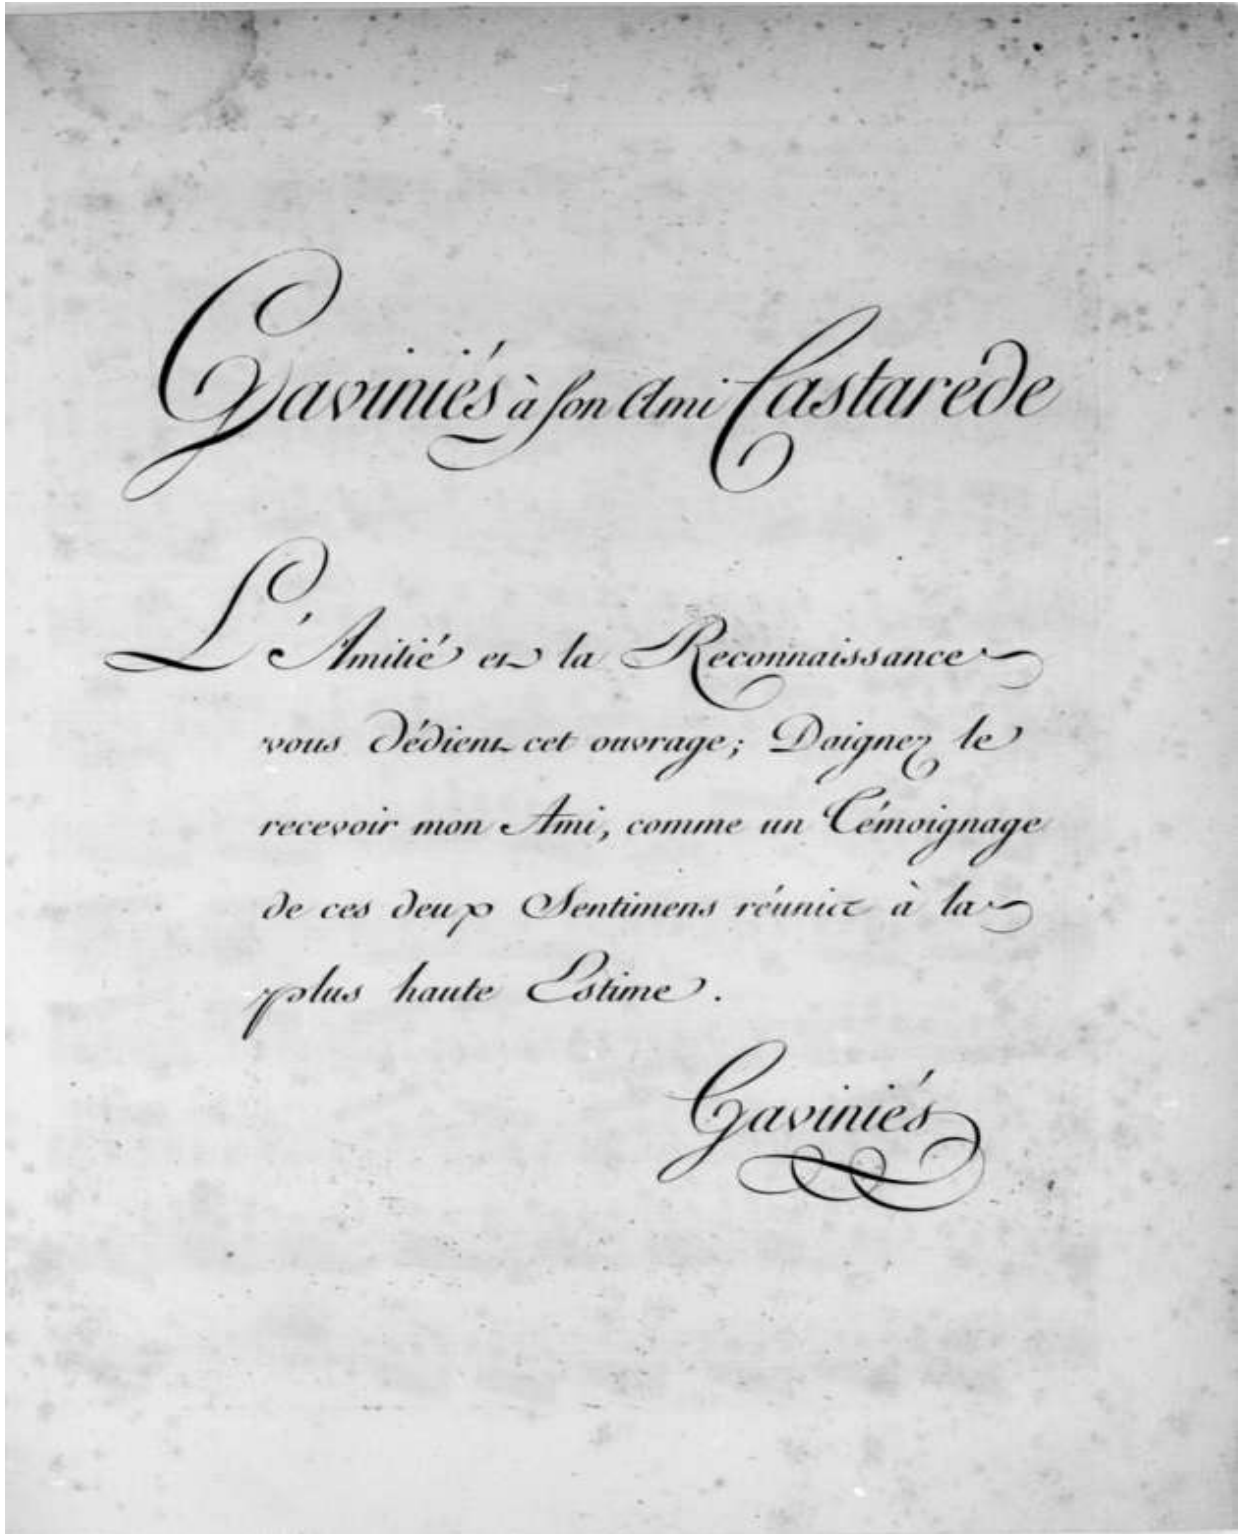 Gaviniés à son Ami Castarede
L'Amitié et la Reconnaissance
vous dédient cet ouvrage; Daignez le
recevoir mon Ami, comme un Témoignage
de ces deux Sentimens réunis à la
plus haute Estime.
Gaviniés